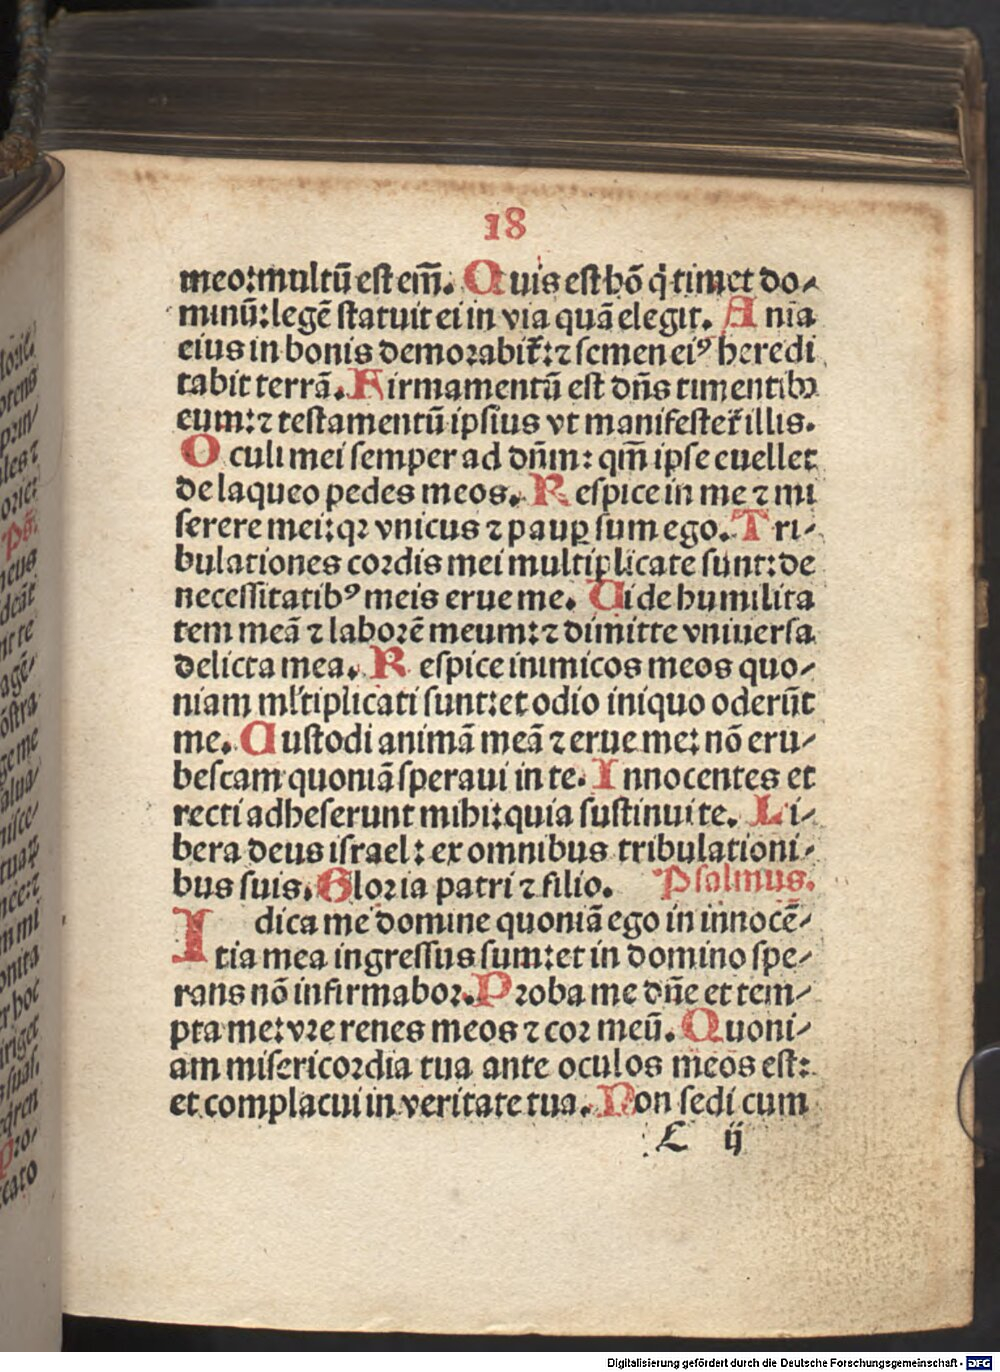 18
meo:multū est em̄. Quis est hō q̇ timet do⸗
minū:legē statuit ei in via quā elegit. Anīa
eius in bonis demorabit̄:⁊ semen eiꝰ heredi
tabit terrā. Firmamentū est dn̄s timentibꝫ
eum:⁊ testamentū ipsius vt manifestet̄ illis.
Oculi mei semper ad dn̄m: qm̄ ipse euellet
de laqueo pedes meos. Respice in me ⁊ mi
serere mei:qꝛ vnicus ⁊ paup̲ sum ego. Tri⸗
bulationes cordis mei multiplicate sunt:de
necessitatibꝰ meis erue me. Uide humilita
tem meā ⁊ laborē meum:⁊ dimitte vniuersa
delicta mea. Respice inimicos meos quo⸗
niam ml̄tiplicati sunt:et odio iniquo oderūt
me. Custodi animā meā ⁊ erue me: nō eru⸗
bescam quoniā speraui in te. Innocentes et
recti adheserunt mihi:quia sustinui te. Li⸗
bera deus israel: ex omnibus tribulationi⸗
bus suis. Gloria patri ⁊ filio. Psalmus.
Idica me domine quoniā ego in innocē⸗
tia mea ingressus sum:et in domino spe⸗
rans nō infirmabor. Proba me dn̄e et tem⸗
pta me:vre renes meos ⁊ cor meū. Quoni⸗
am misericordia tua ante oculos meos est:
et complacui in veritate tua. Non sedi cum
L ij
Digitalisierung gefördert durch die Deutsche Forschungsgemeinschaft - DFG